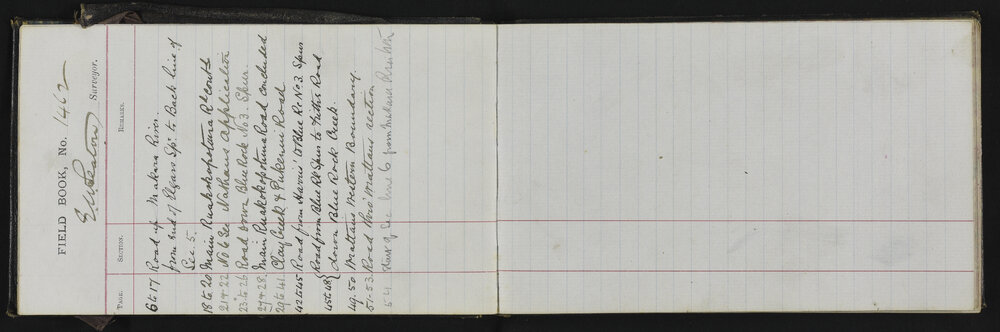 FIELD BOOK, No. 1462
E.W. Seaton Surveyor.
PAGE. SECTION. REMARKS.
6 to 17 Road up Makara River.
from end of Elgars Spr. to Back line of
Sec. 5.
18 to 20 Main Ruakokopatuna Rd contd
21 & 22 No 6 Sec Nathans Application
23 to 26 Road down Blue Rock No 3. Spur.
27 & 28. Main Ruakokopatuna Road concluded
29 to 41. Clay Creek & Pukenui Road
42 to 45 Road from Harris' to Blue Rk No 3. Spur
45 to 48 Road from Blue Rk Spur to Tuthis Road
down Blue Rock Creek.
49. 50 Maltans Western Boundary.
51-53. Road thro' Maltaus section
54 of Sec line 6 from Makara